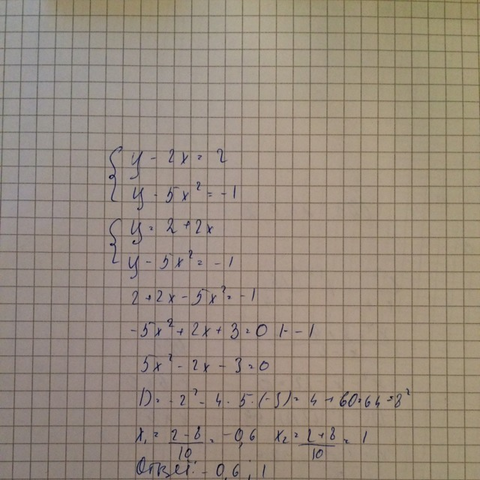 { y - 2x = 2
{ y - 5x² = -1
{ y = 2 + 2x
{ y - 5x² = -1
2 + 2x - 5x² = -1
-5x² + 2x + 3 = 0 |· -1
5x² - 2x - 3 = 0
D = -2² - 4 · 5 · (-3) = 4 + 60 = 64 = 8²
x₁ = (2 - 8)/10 = -0,6 x₂ = (2 + 8)/10 = 1
Ответ: -0,6 ; 1